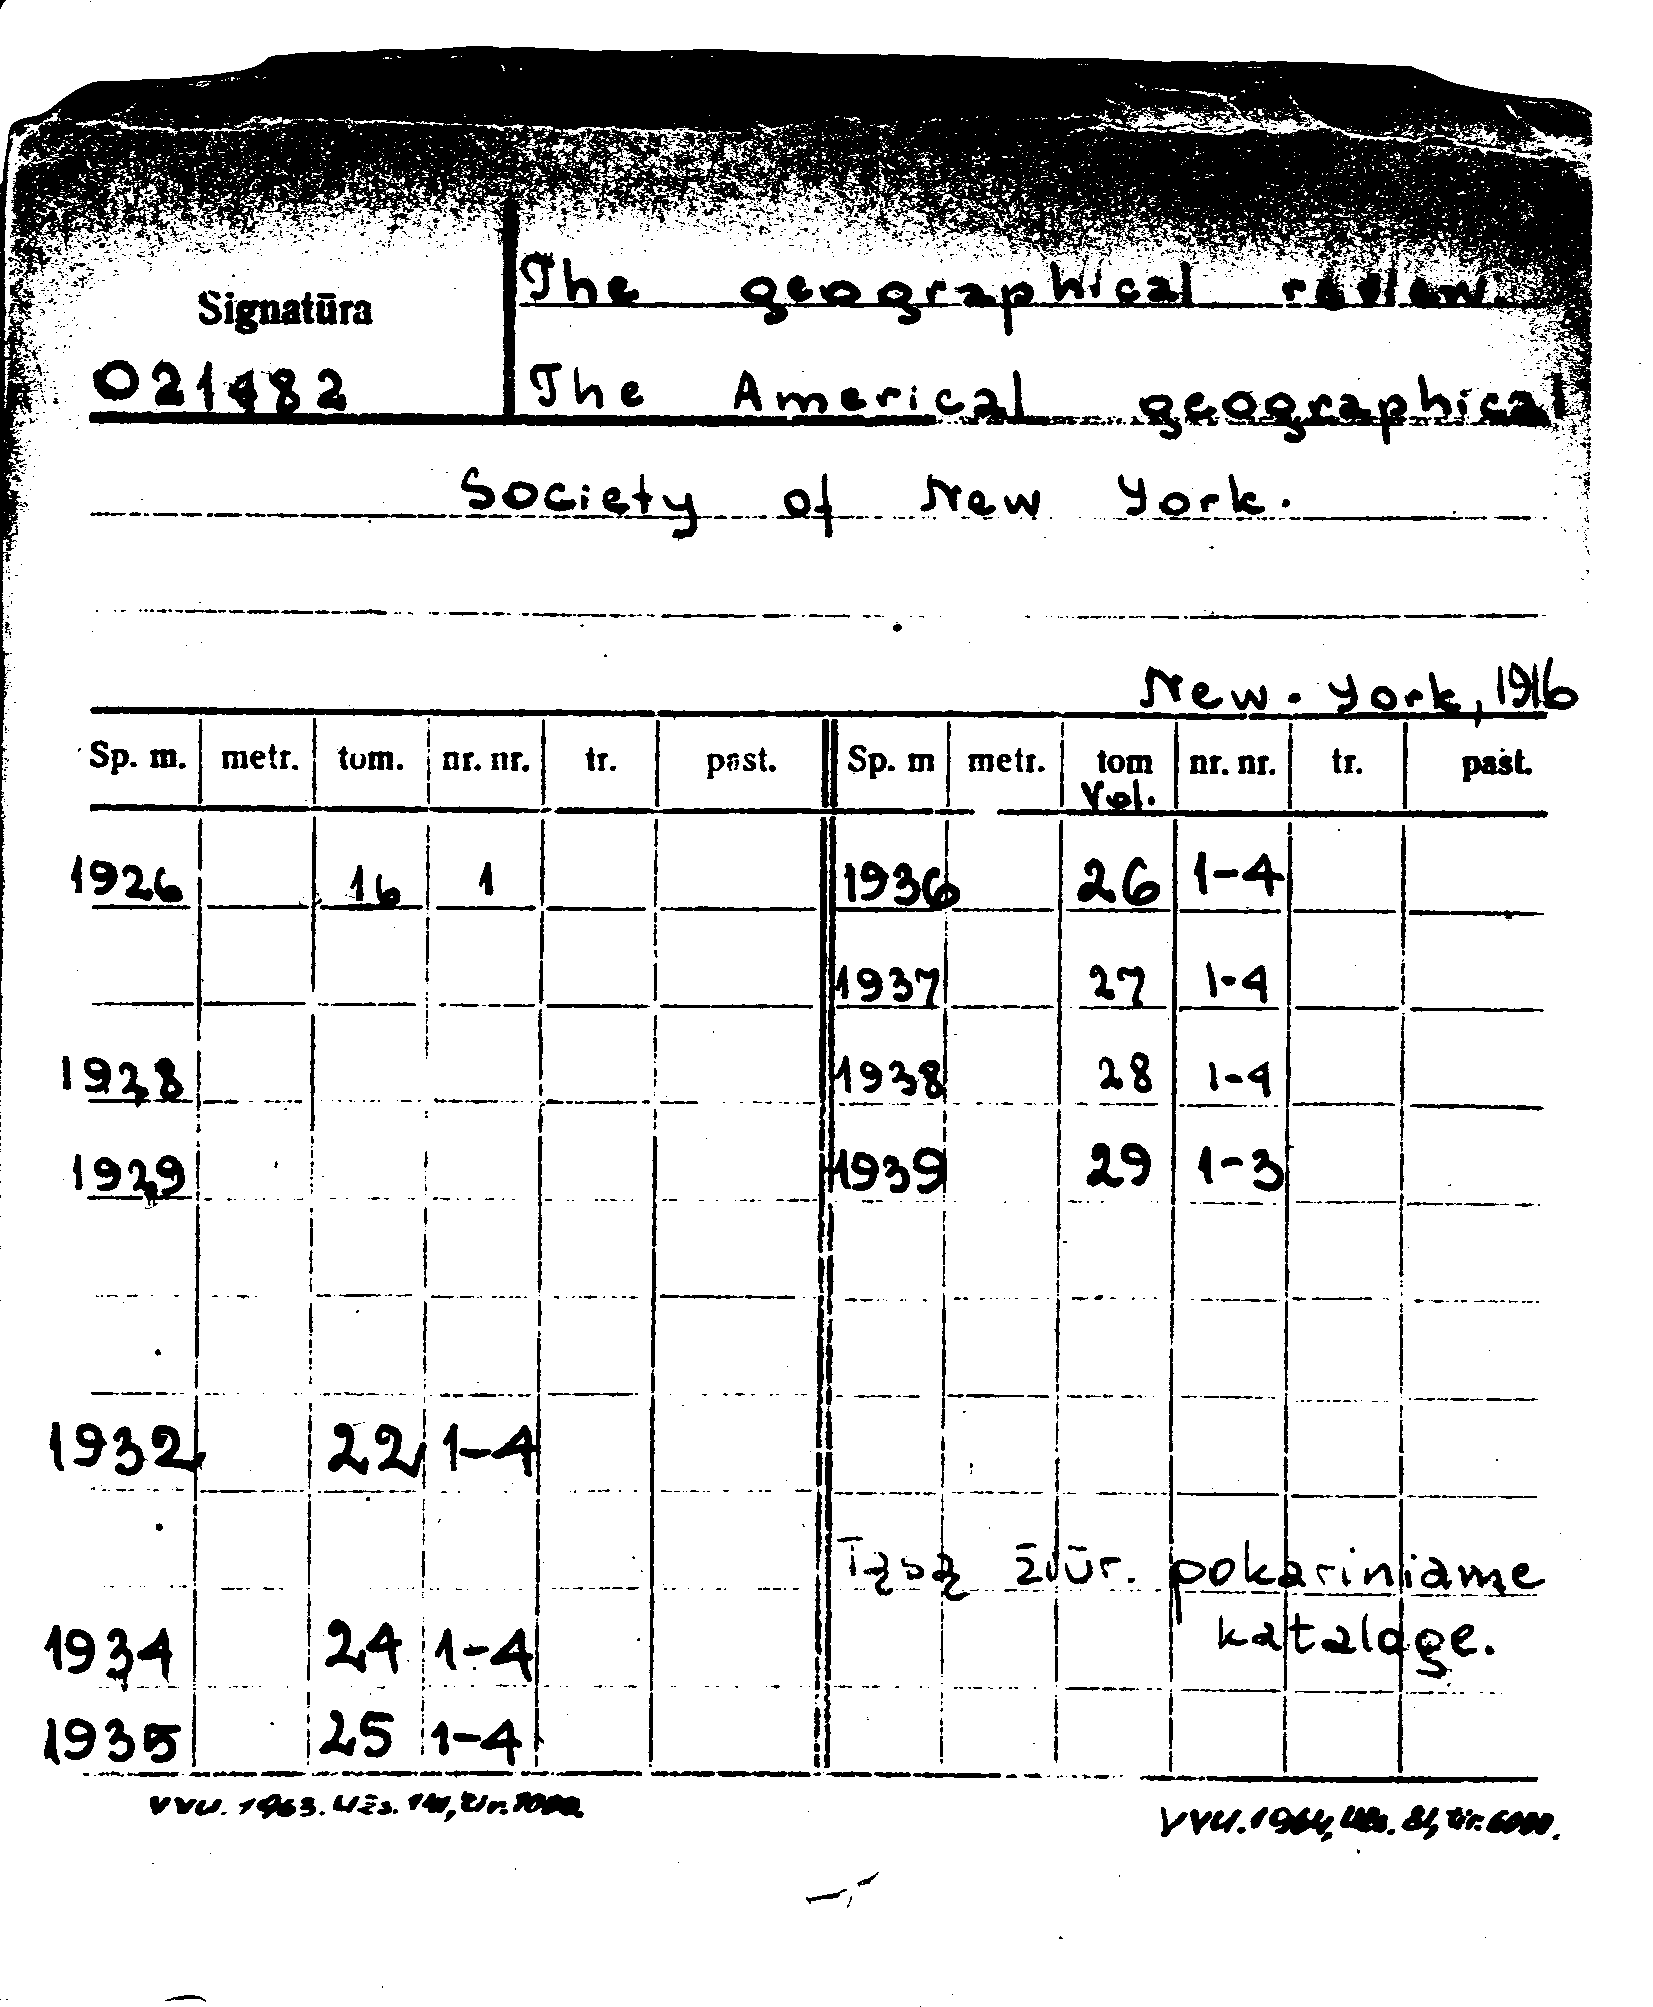 The geographical review.
Signatūra
021482
The Americal geographical
Society of New York.
New-York, 1916
Sp. m. metr. tom. nr. nr. tr. past. Sp. m metr. tom nr. nr. tr. past.
Vol.
1926 16 1 1936 26 1-4
1937 27 1-4
1928 1938 28 1-4
1929 1939 29 1-3
1932 22 1-4
žiūr. pokariniame
1934 24 1-4 kataloge.
1935 25 1-4
VVU. 1963. Užs. tir.
VVU. 1964, Užs. 81, tir. 6000.